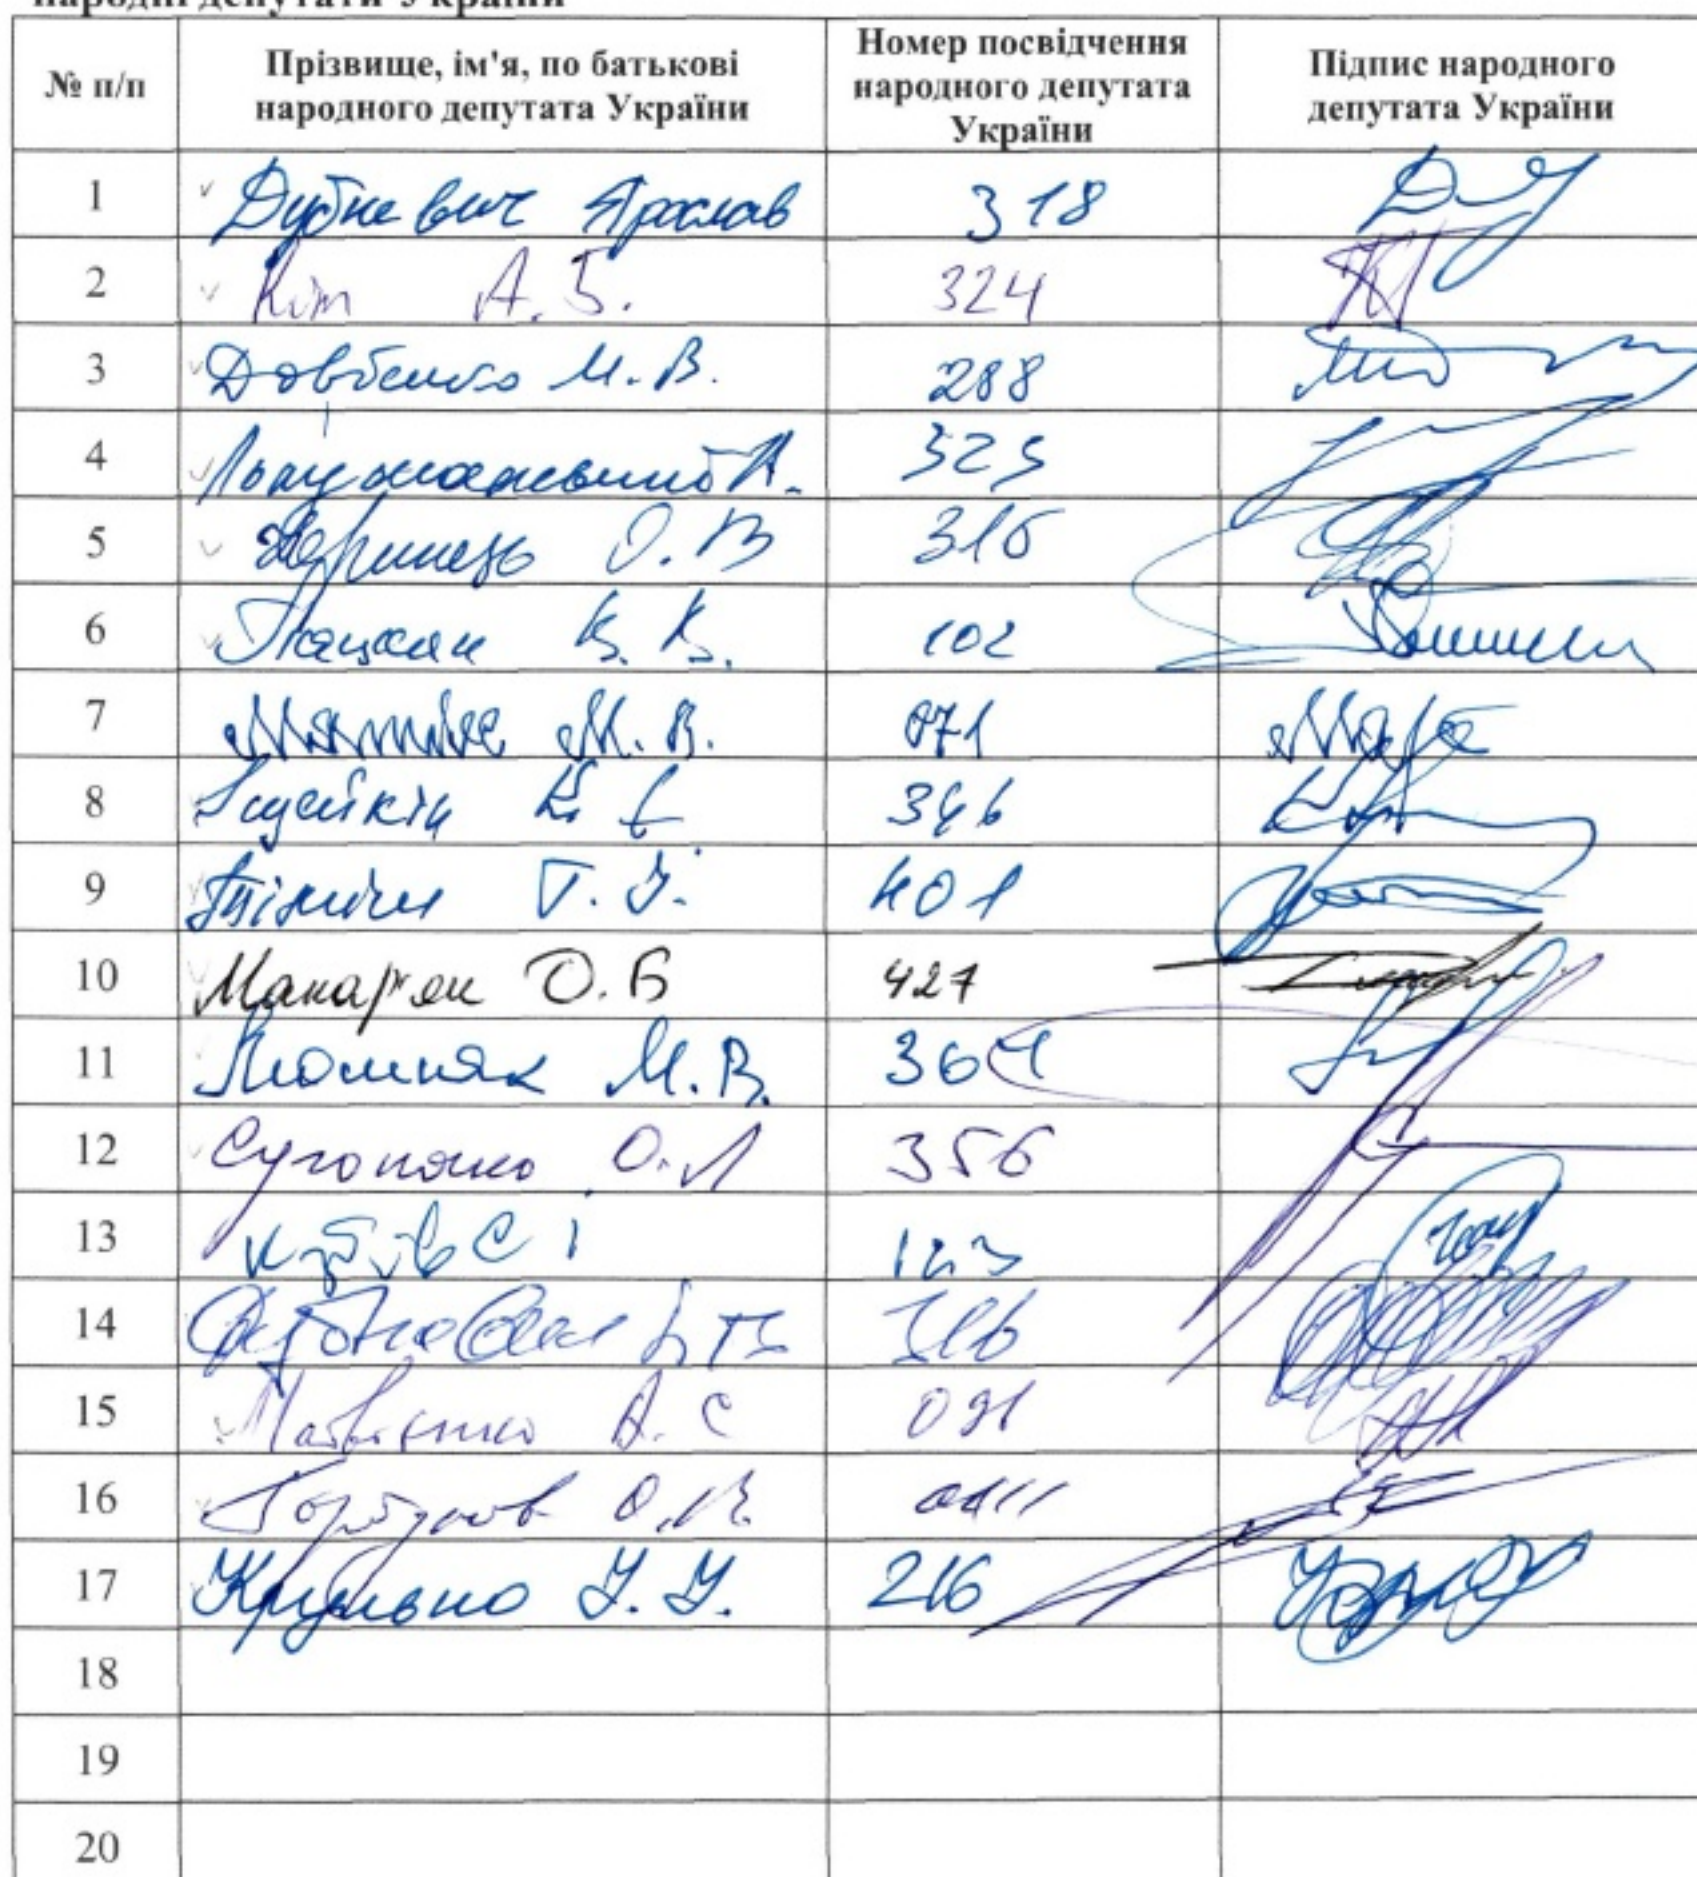 народні депутати України
№ п/п
Прізвище, ім'я, по батькові
народного депутата України
Номер посвідчення
народного депутата
України
Підпис народного
депутата України
1 Дубневич Ярослав 318
2 Кіт А. Б. 324
3 Довбенко М. В. 288
4 А. 323
5 О. В 316
6 Пацкан В. В. 102
7 Матвіє М. В. 071
8 Іщейкін К. Є. 346
9 Тіміш Г. І. 401
10 Макар'ян О. Б 427
11 Люшняк М. В. 364
12 Сугоняко О. Л 356
13 Кубів С І 123
14
15 Матвієнко А. С 091
16 Горбунов О. В.
17 Крулько І. І. 216
18
19
20